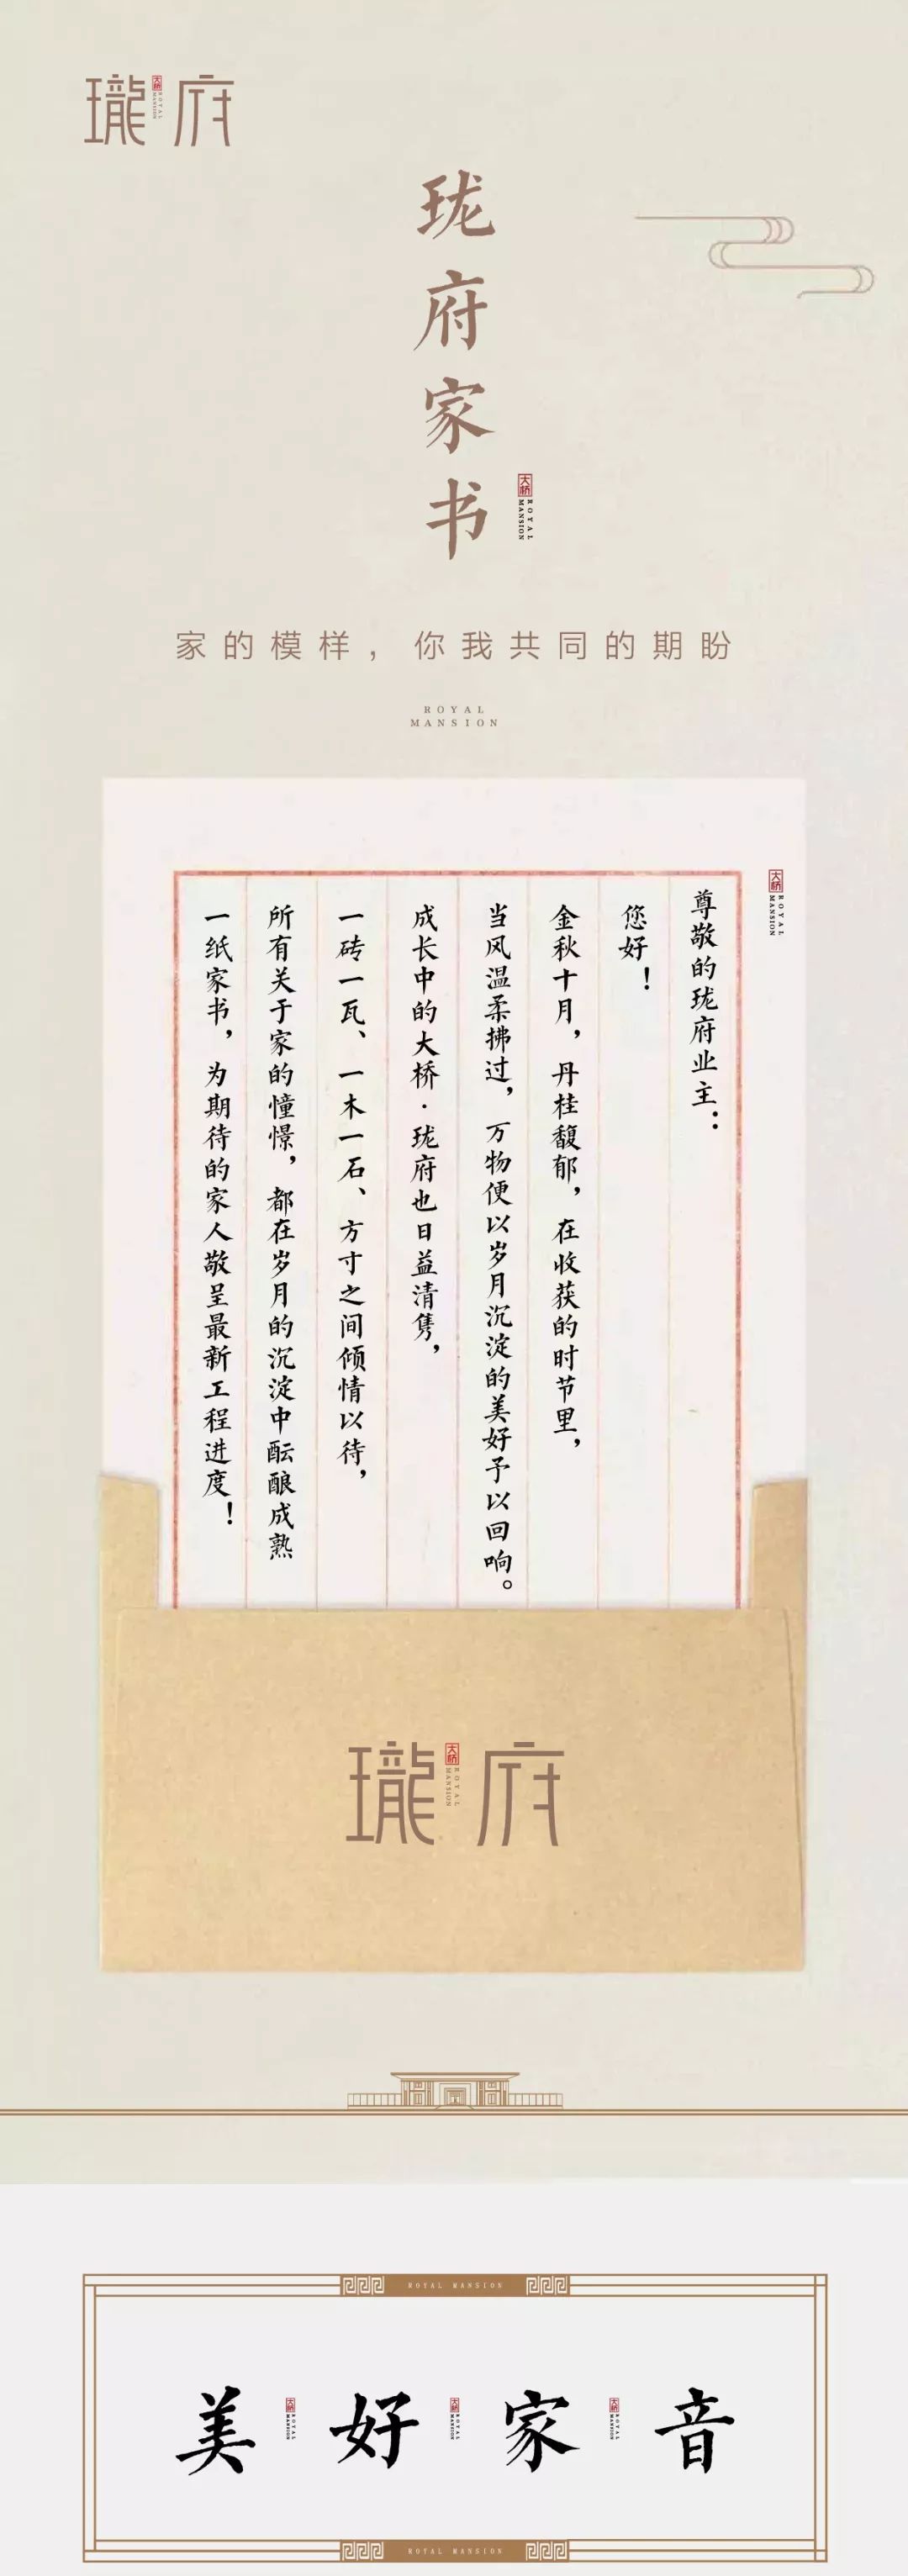 瓏府
大桥
ROYAL
MANSION
珑府家书
大桥
ROYAL
MANSION
家的模样，你我共同的期盼
ROYAL
MANSION
大桥
ROYAL
MANSION
尊敬的珑府业主：
您好！
金秋十月，丹桂馥郁，在收获的时节里，
当风温柔拂过，万物便以岁月沉淀的美好予以回响。
成长中的大桥·珑府也日益清隽，
一砖一瓦、一木一石、方寸之间倾情以待，
所有关于家的憧憬，都在岁月的沉淀中酝酿成熟
一纸家书，为期待的家人敬呈最新工程进度！
瓏府
大桥
ROYAL
MANSION
ROYAL MANSION
美好家音
大桥
ROYAL
MANSION
大桥
ROYAL
MANSION
大桥
ROYAL
MANSION
ROYAL MANSION